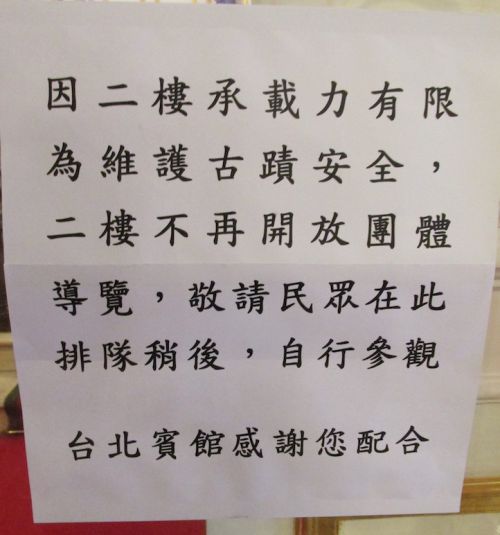 因二樓承載力有限
為維護古蹟安全，
二樓不再開放團體
導覽，敬請民眾在此
排隊稍後，自行參觀
台北賓館感謝您配合